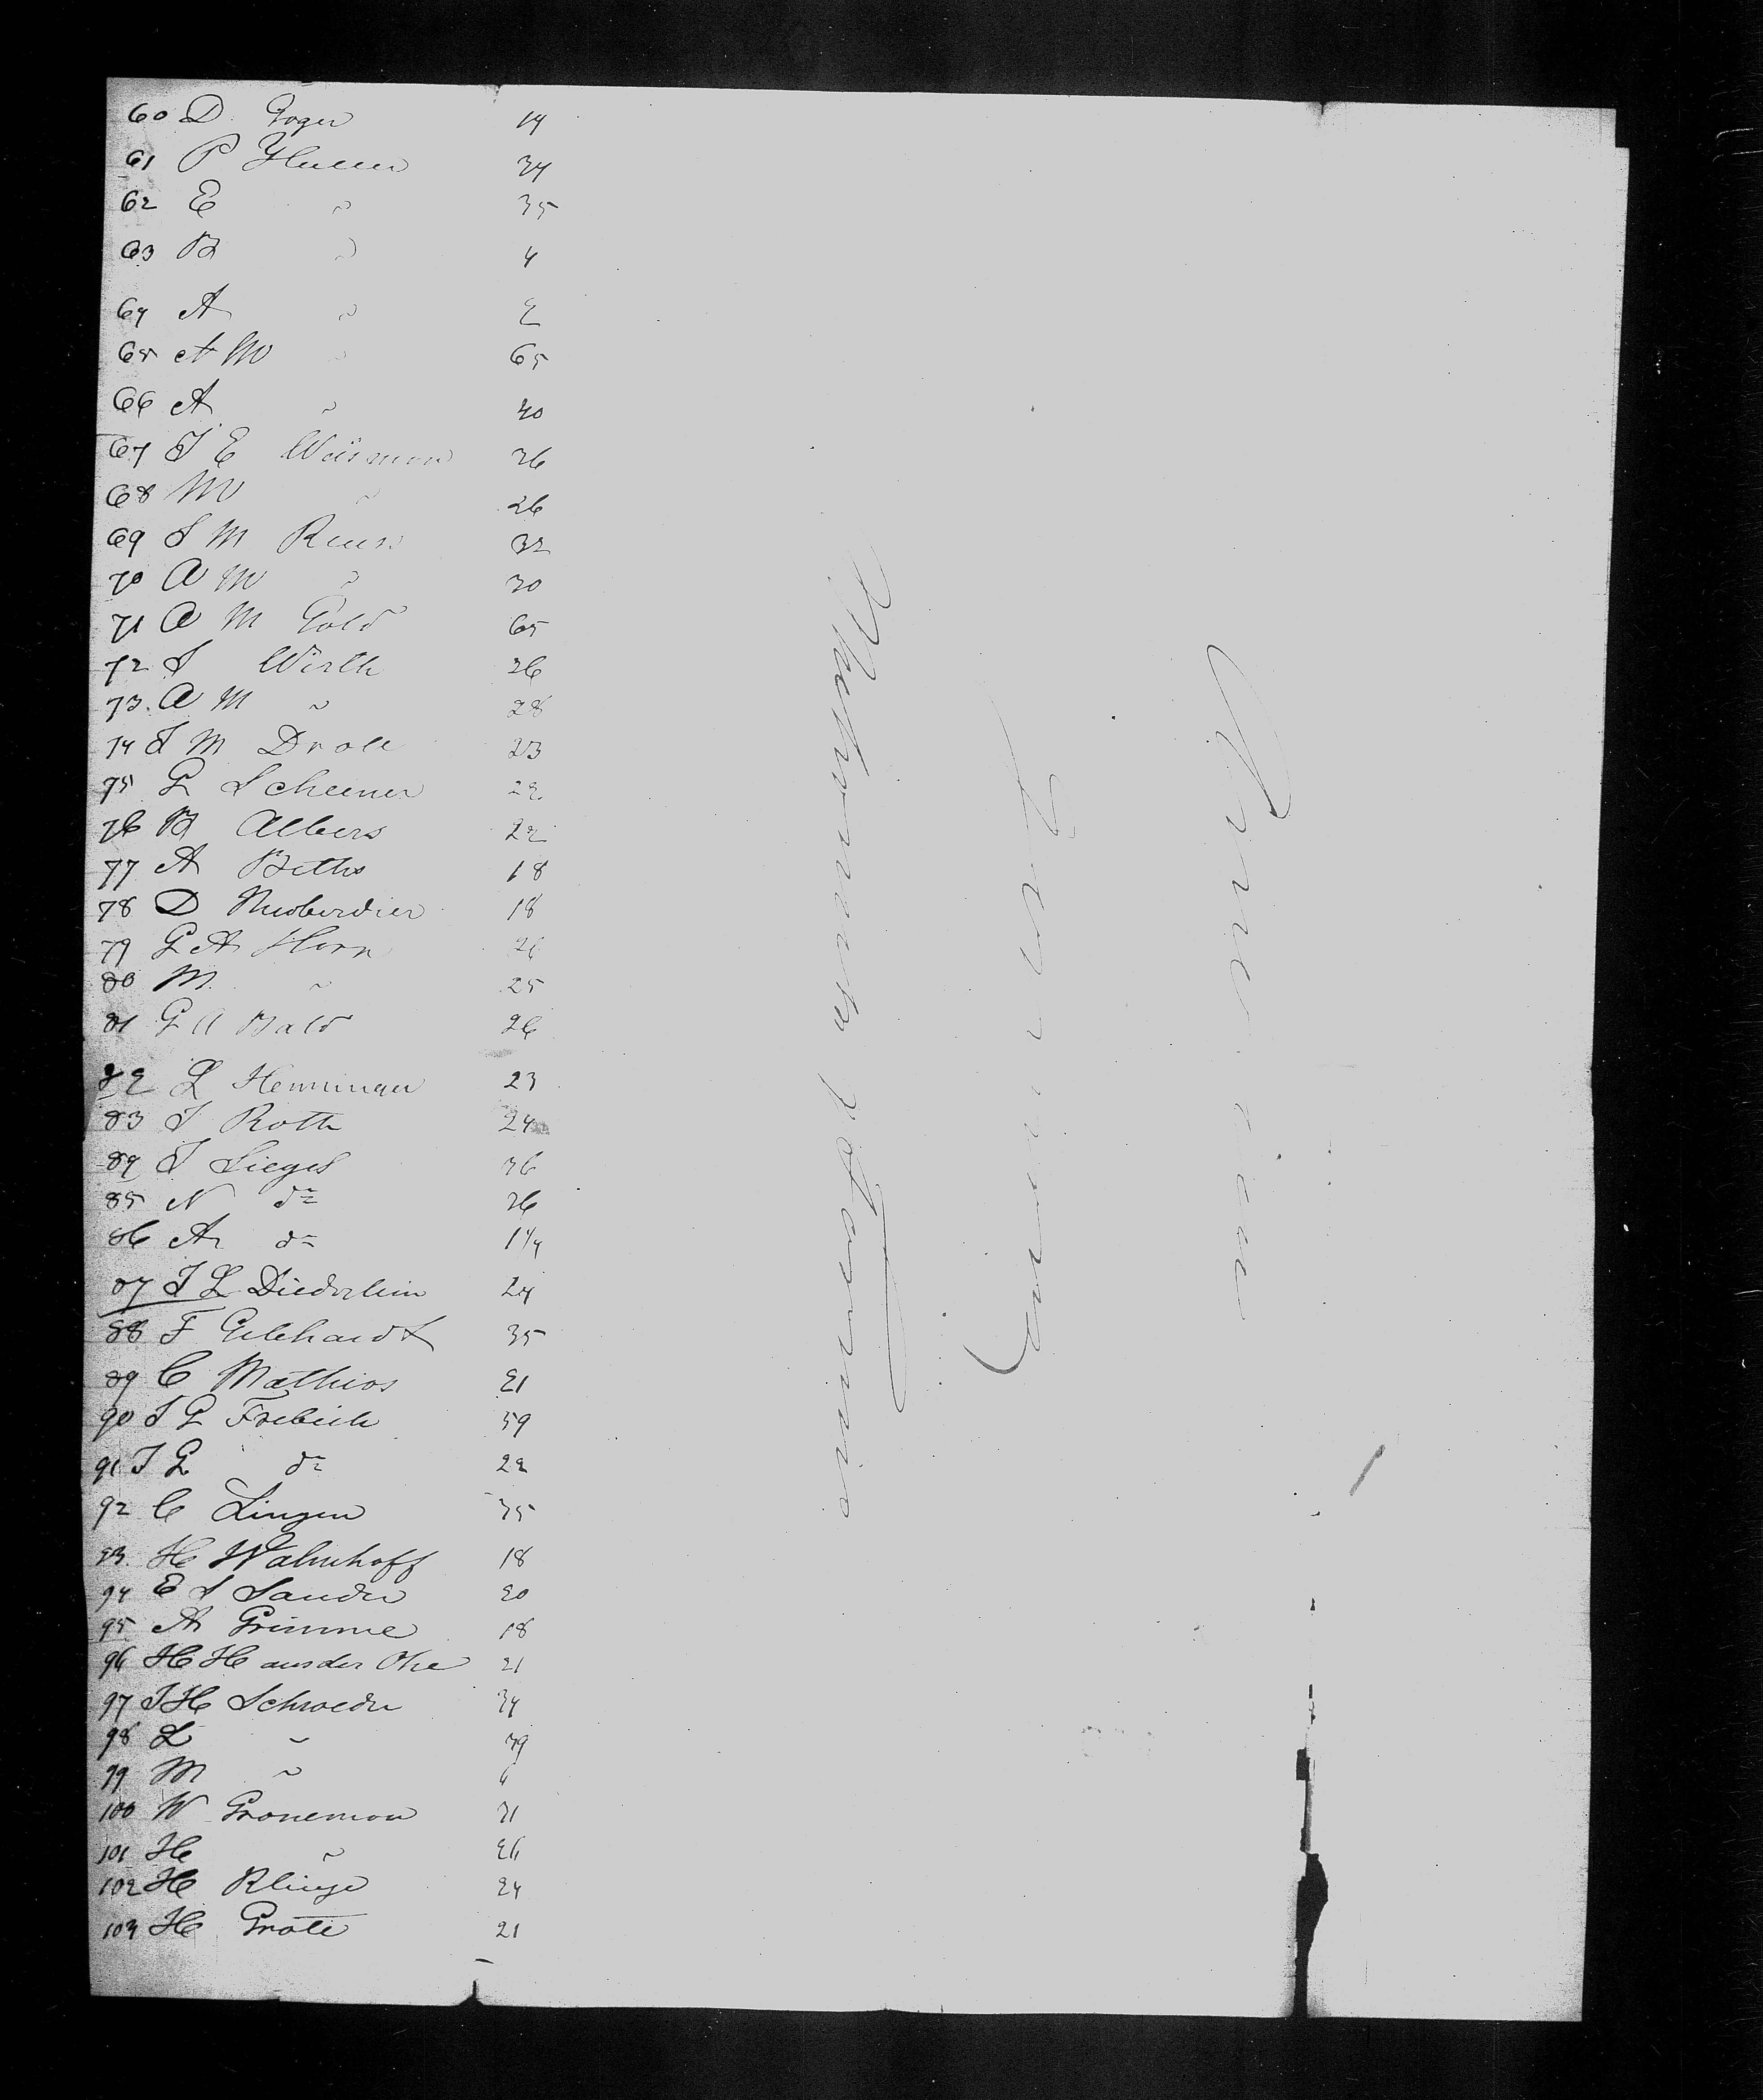 60 D. Goger 14
61 P 34
62 E ~ 35
63 B ~ 4
64 A ~ 2
65 A M ~ 65
66 A ~ 40
67 J E 36
68 M ~ 26
69 J M 32
70 A M ~ 30
71 A M Gold 65
72 J Wirth 36
73. A M ~ 28
74 J M Droll 23
75 G Scheener 22
76 B Albers 22
77 A Beths 18
78 D 18
79 G A Horn 26
80 M. ~ 25
81 G A Bald 26
82 L Henninger 23
83 J Roth 24
84 J Siegel 36
85 N do 26
86 A do 1 1/4
87 J L Diederlein 24
88 F Gebhardt 35
89 C Mathias 21
90 J G Frebich 59
91 J G do 22
92 C Lingen 35
93. H Walmhoff 18
94 E J Sander 20
95 A Grimme 18
96 H H aus der Ohe 21
97 J H Schroeder 34
98 L ~ 39
99 M ~ 6
100 W Gronemon 31
101 H ~ 26
102 H Klinge 24
103 H Grote 21